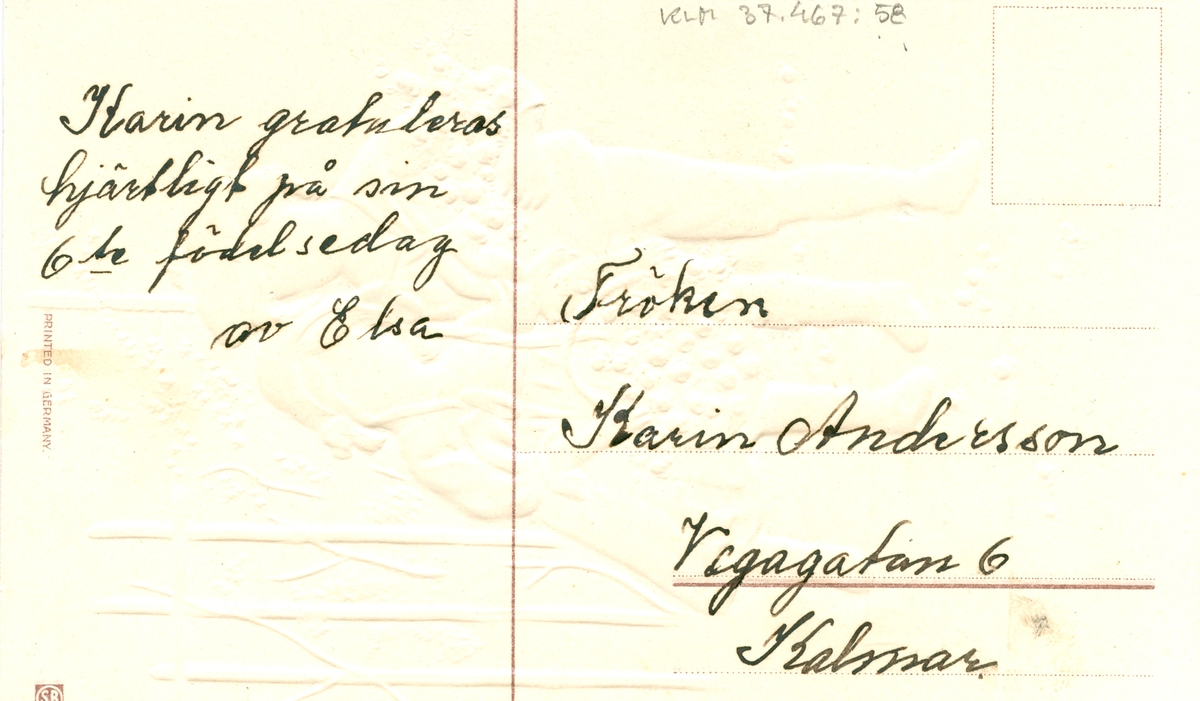 KLM 37.467:58
Karin gratuleras
hjärtligt på sin
6te födelsedag
av Elsa
PRINTED IN GERMANY.
SB
Fröken
Karin Andersson
Vegagatan 6
Kalmar.